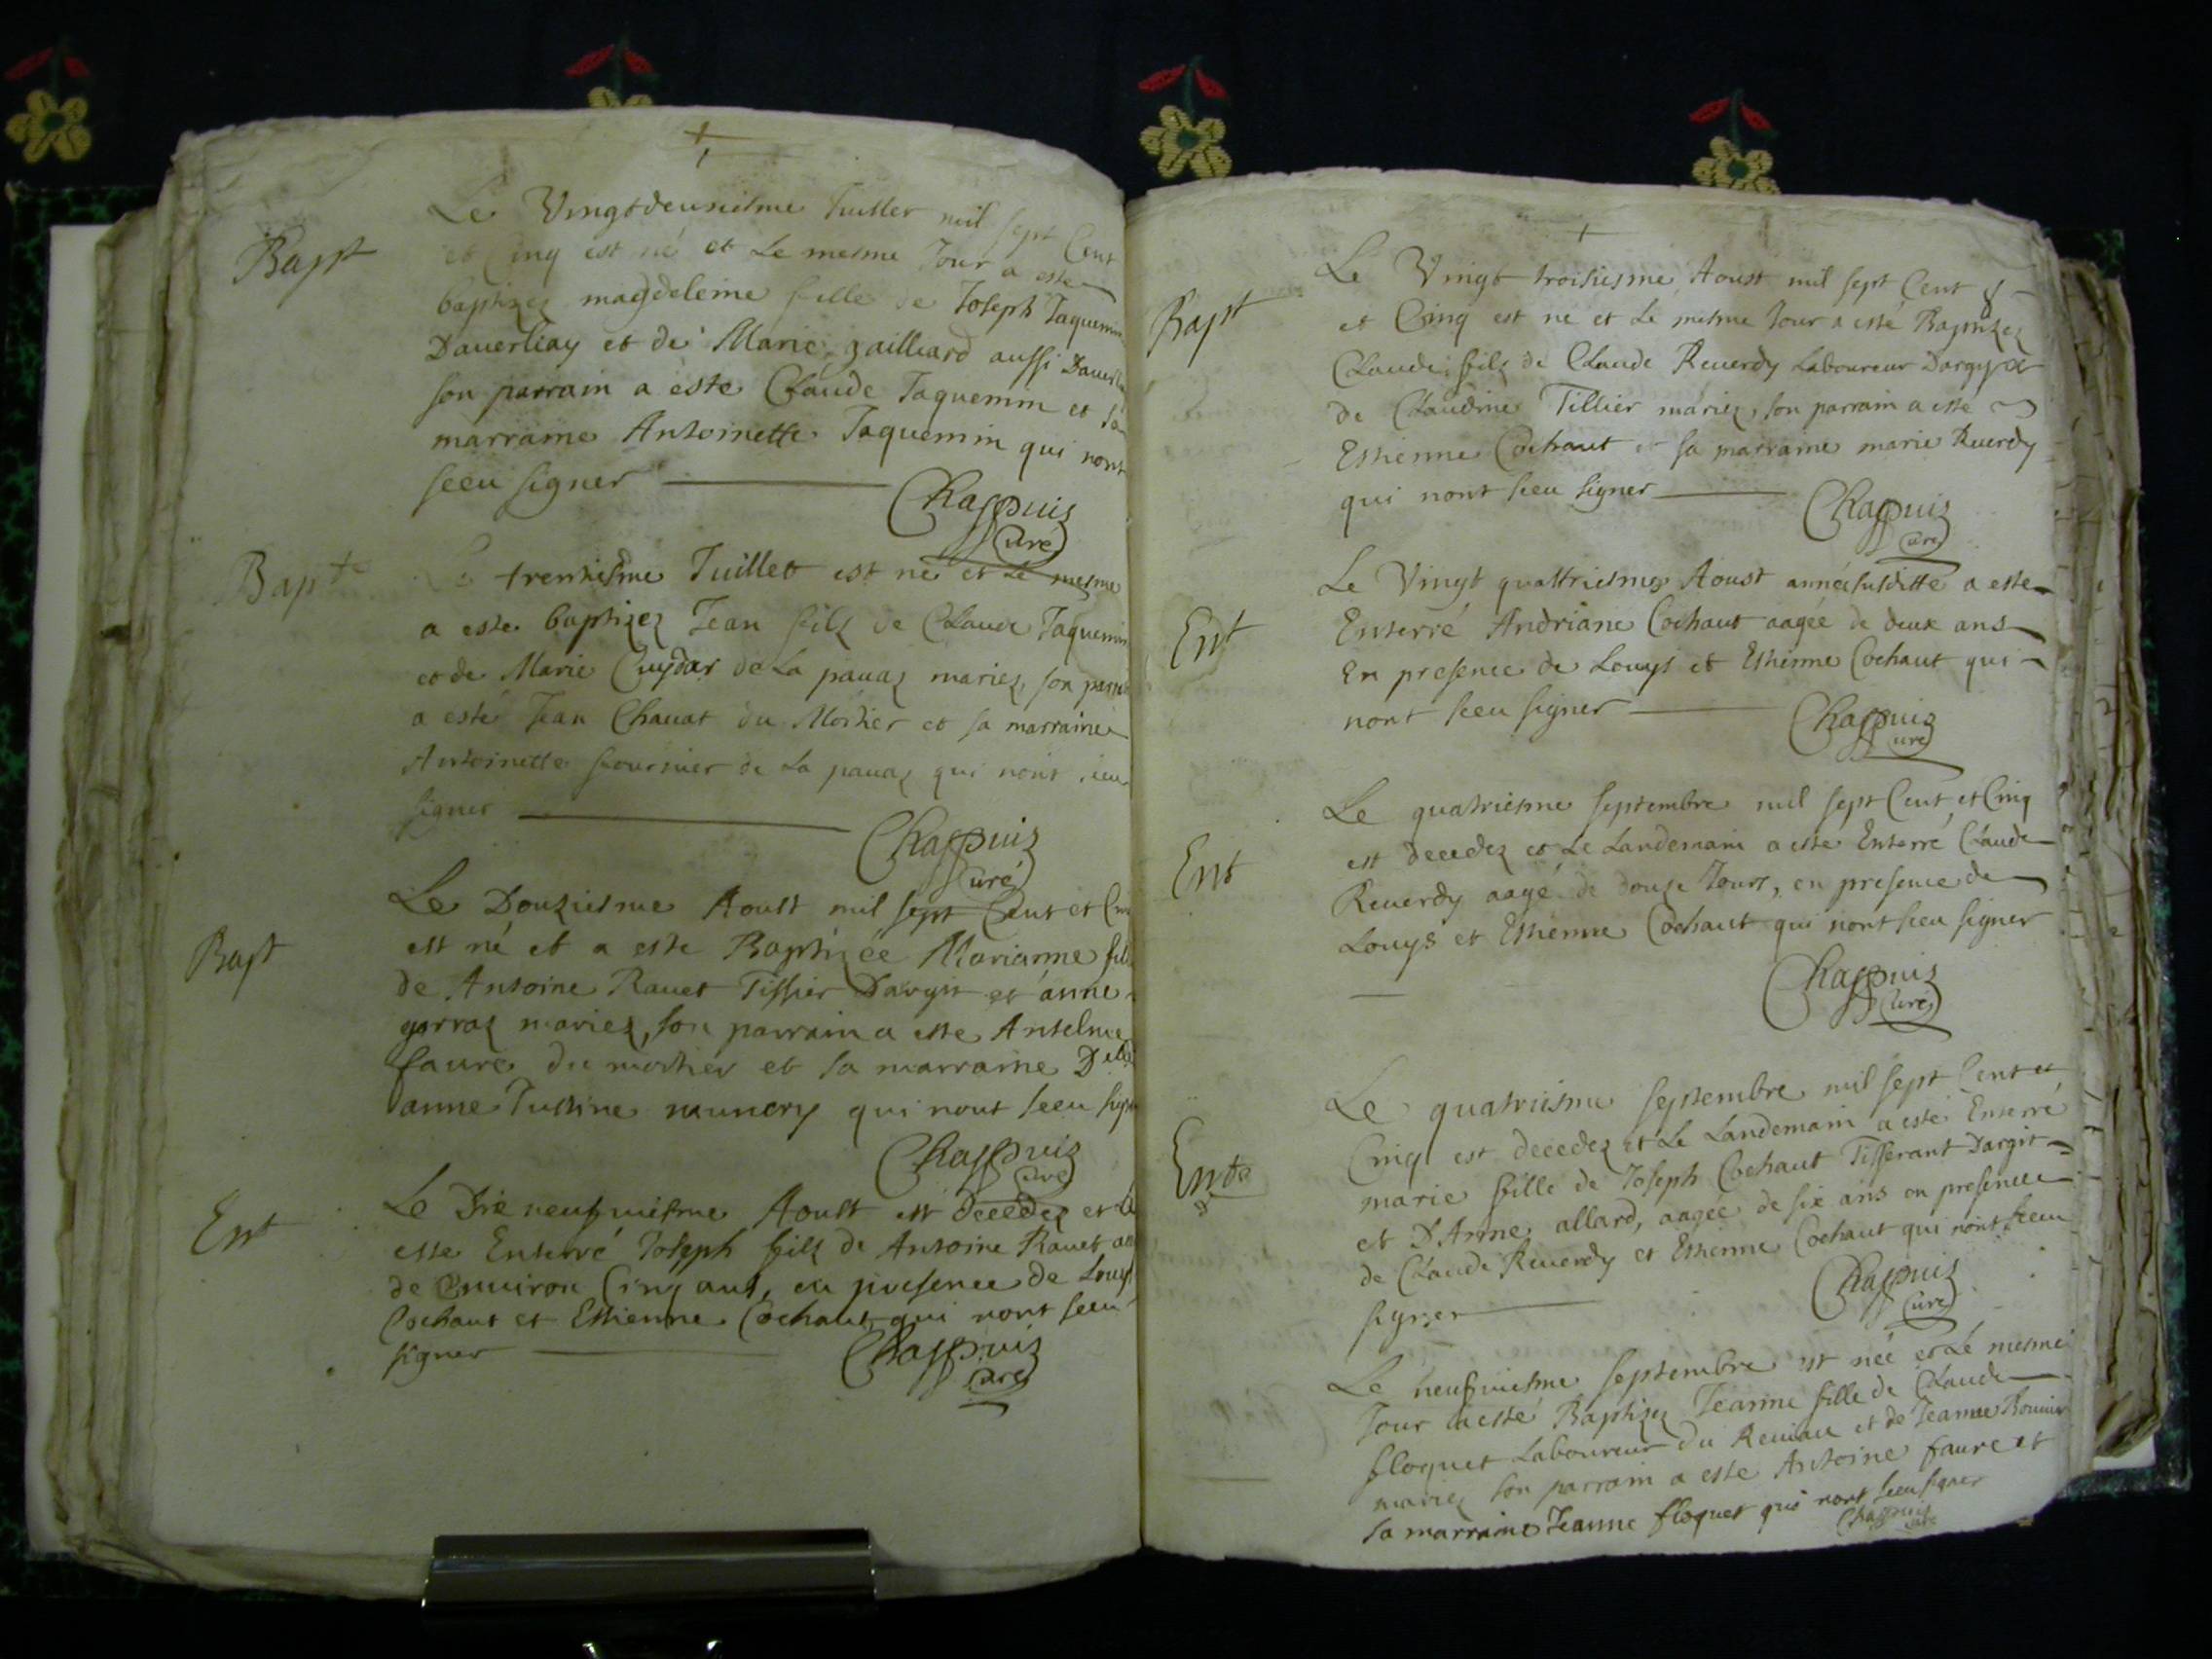 Bapt
Le Vingtdeuxiesme Juillet mil sept Cent
et Cinq est né et Le mesme Jour a este
baptizez magdeleine fille de Joseph Jaquemin
Daverliay et de Marie gailliard aussi
son parrain a este Claude Jaquemin et sa
marraine Antoinette Jaquemin qui nont
sceu signer
Chappuis
Curé
Bapte
Le trentiesme Juillet est né et Le mesme
a este baptizez Jean filz de Claude Jaquemin
et de Marie de La pavaz mariez, son
a esté Jean Chavat du Mostier et sa marraine
Antoinette fournier de La pavaz qui nont sceu
signer
Chappuis
Curé
Bapt
Le Douziesme Aoust mil sept Cent et
est né et a este Baptizée Marianne
de Antoine Ravet Tissier Dargit et anne
gorraz mariez, son parrain a este Anselme
faure du mostier et sa marraine
anne qui nont sceu
Chappuis
Curé
Ent
Le Dix neufviesme Aoust est Decedez et
este Enterré Joseph filz de Antoine Ravet
de Environ Cinq ans, en presence de Louys
Cochaut et Estienne Cochaut qui nont sceu
signer
Chappuis
Curé
Bapt
Le Vingt troisiesme Aoust mil sept Cent
et Cinq est né et Le mesme Jour a esté Baptizez
Claude filz de Claude Reverdy Laboureur
de Claudine Tillier mariez, son parrain a esté
Estienne Cochaut et sa marraine marie Reverdy
qui nont sceu signer
Chappuis
Curé
Ent
Le Vingt quattriesme Aoust année susditte a este
Enterré Andriane Cochaut aagée de deux ans
En presence de Louys et Estienne Cochaut qui
nont sceu signer
Chappuis
Curé
Ent
Le quatriesme septembre mil sept Cent et Cinq
est decedez et Le Landemain a esté Enterré Claude
Reverdy aagé de douze Jours, en presence de
Louys et Estienne Cochaut qui nont sceu signer
Chappuis
Curé
Ente
Le quatriesme septembre mil sept Cent et
Cinq est decedez et Le Landemain a esté Enterré
marie fille de Joseph Cochaut Tisserant Dargit
et D'Anne allard, aagée de six ans en presence
de Claude Reverdy et Estienne Cochaut qui nont sceu
signer
Chappuis
Curé
Le neufviesme septembre est née et Le mesme
Jour a esté Baptizez Jeanne fille de Claude
floquet Laboureur du et de Jeanne
mariez son parrain a este Antoine faure et
sa marraine Jeanne floquet qui nont sceu signer
Chappuis
Curé